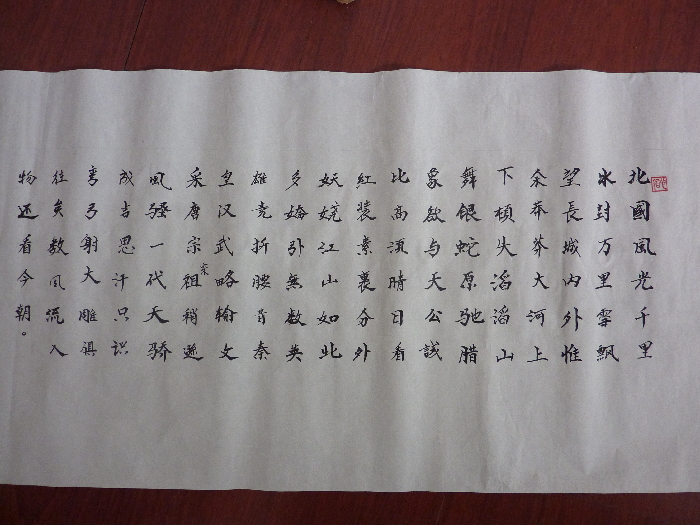 北國風光千里
冰封万里雪飄
望長城内外惟
余莽莽大河上
下頓失滔滔山
舞銀蛇原馳腊
象欲与天公誠
比高須晴日看
紅裝素裹分外
妖娆江山如此
多嬌引無数英
雄竞折腰昔秦
皇汉武略输文
采唐宗宋祖稍遜
風骚一代天骄
成吉思汗只识
弯弓射大雕俱
往矣数風流人
物还看今朝。